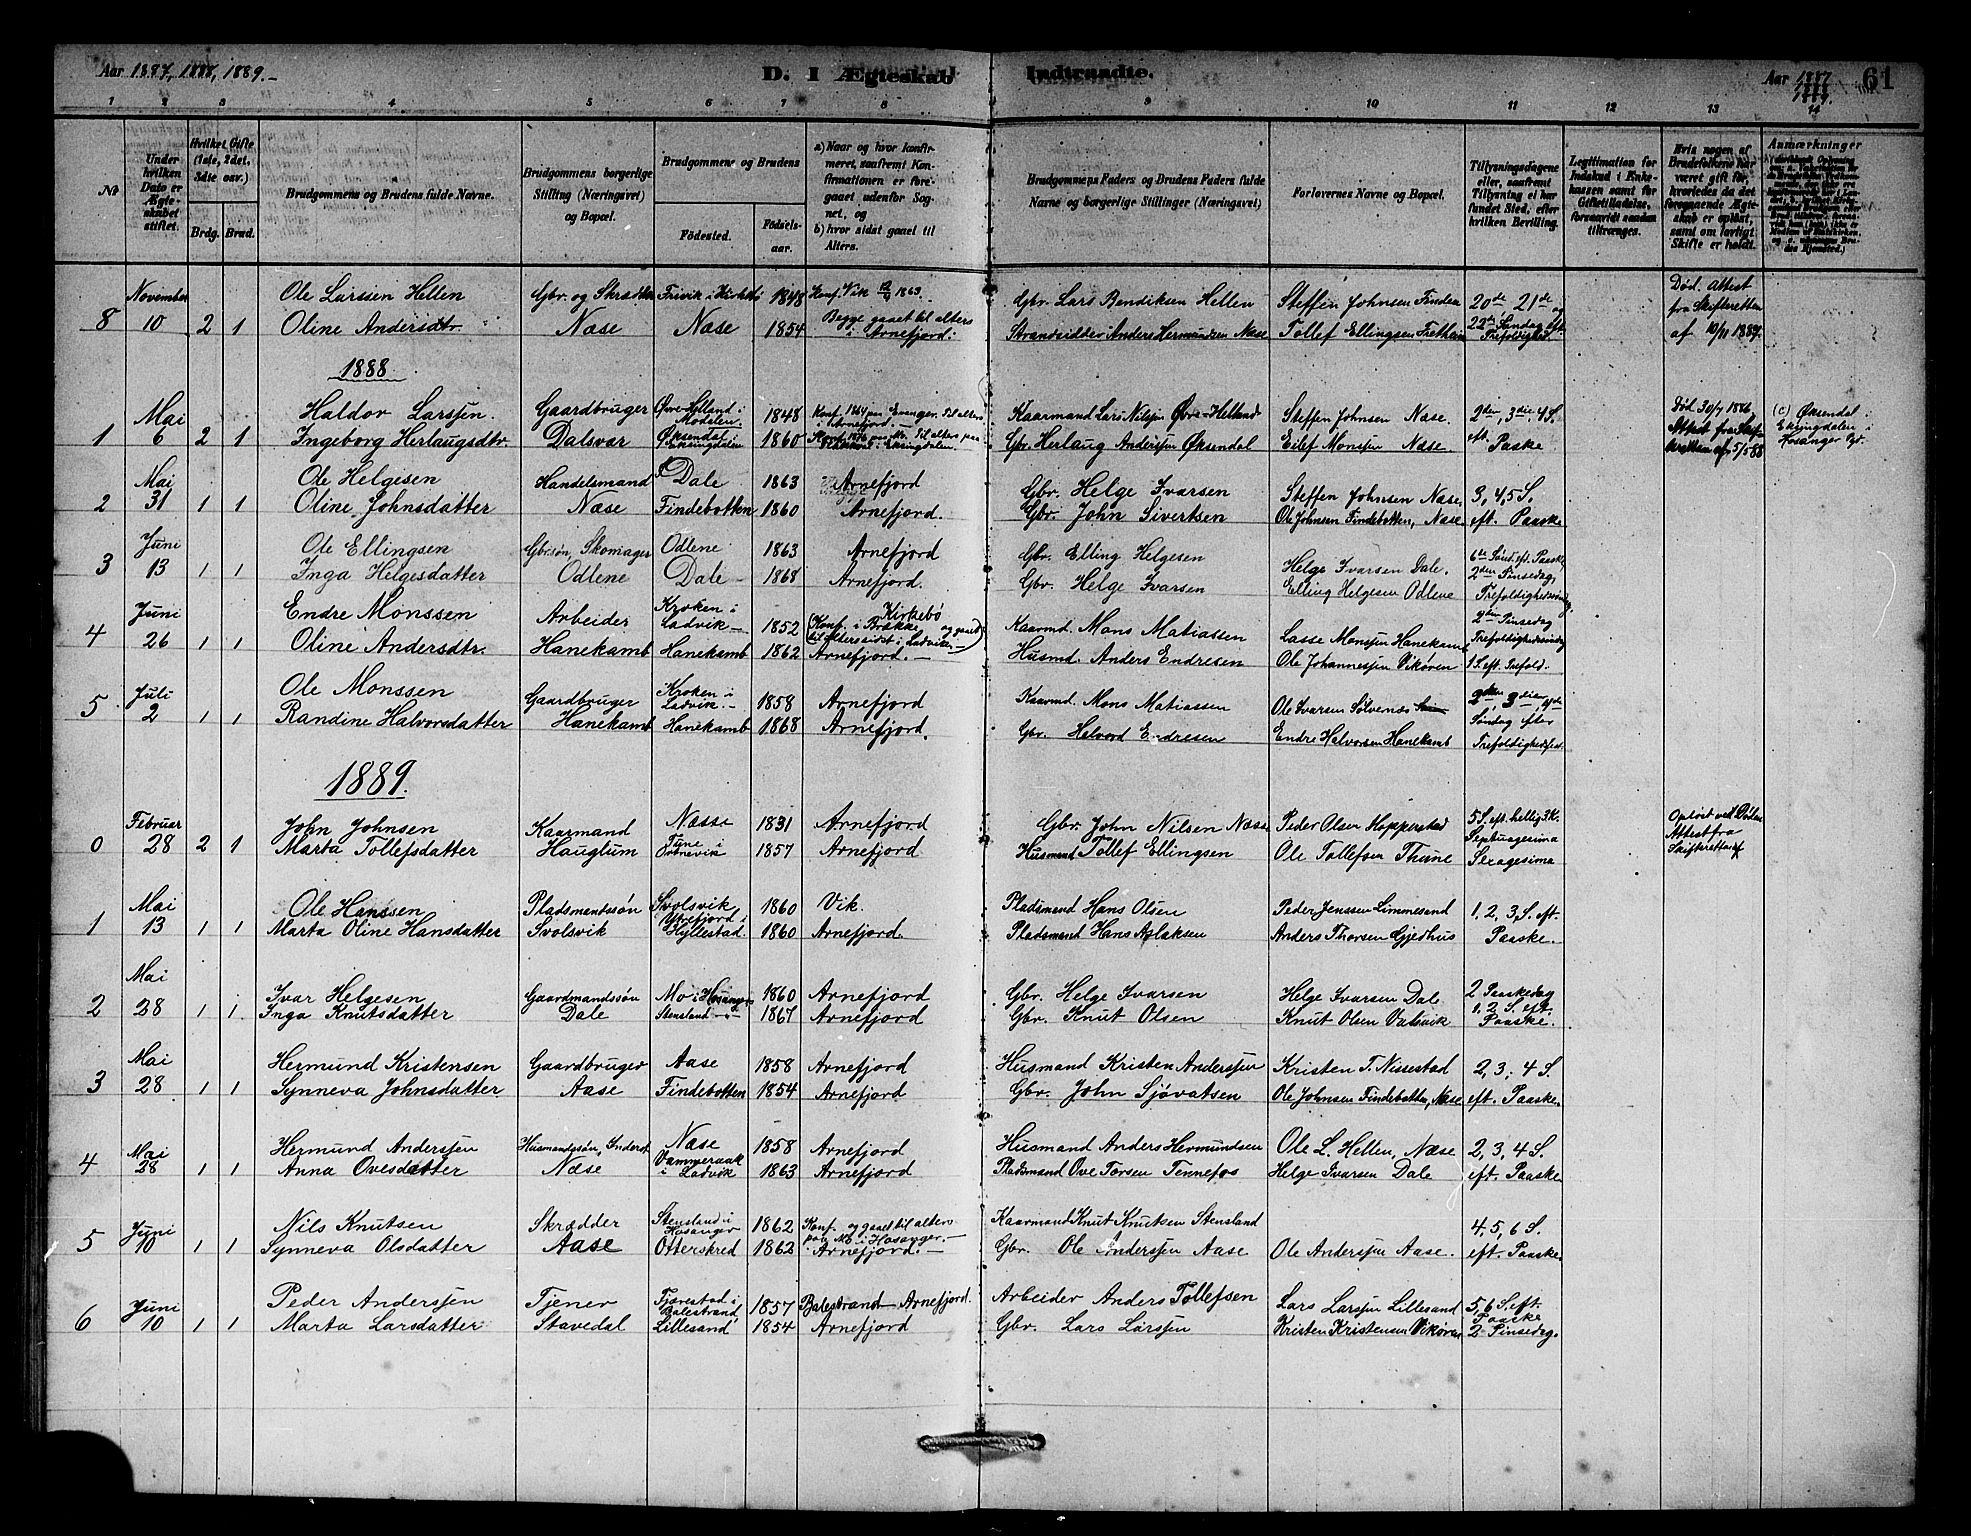 Aar 1887, 1888, 1889.-
D. I Ægteskab Indtraadte.
Aar 1887 1889. 61
1 2 3 4 5 6 7 8 9 10 11 12 13 14
Nr.
Under hvilken Dato er Ægteskabet stiftet.
Hvilket Gifte (1ste, 2det, 3die osv.)
Brdg. Brud.
Brudgommens og Brudens fulde Navne.
Brudgommens borgerlige Stilling (Næringsvei) og Bopæl.
Brudgommens og Brudens
Födested. Födselsaar.
a) Naar og hvor konfirmeret, saafremt Konfirmationen er foregaaet udenfor Sognet, og
b) hvor sidst gaaet til Alters.
Brudgommens Faders og Brudens Faders fulde Navne og borgerlige Stillinger (Næringsvei)
Forlovernes Navne og Bopæl.
Tillysningsdagene eller, saafremt Tillysning ei har fundet Sted, efter hvilken Bevilling.
Legitimation for Indskud i Enkekassen samt for Giftetilladelse, forsaavidt saadan tiltrænges.
Hvis nogen af Brudefolkene har været gift før, hvorledes da det foregaaende Ægteskab er opløst, samt om lovligt Skifte er holdt.
Anmærkninger
November Ole Larssen Hellen Gbr. og Skrædder 1848 Konf. Vik 1863. Gbr. Lars Bendiksen Hellen Steffen Johnsen Finden 20de 21de og Død. Attest fra Skifteretten
8 10 2 1 Oline Andersdtr. Næse Næse 1854 Begge gaaet til alters i Arnefjord. Strandsidder Anders Hermundsen Næse Tollef Ellingsen Fretheim 22de Søndag eft. Trefoldighed. af 10/11 1887.
1888.
Mai Haldor Larssen. Gaardbruger Øvre-Helland i Modalen 1848 Konf. 1864 paa Evanger. Til alters i Arnefjord. Kaarmand Lars Nilssen Øvre-Helland Steffen Johnsen Næse 2den, 3die, 4 S. Død 30/7 1886, (c) Øksendal i
1 6 2 1 Ingeborg Herlaugsdtr. Dalsvær Øksendal i Eksingdalen 1860 Gbr. Herlaug Anderssen Øksendal Eilef Monssen Næse. eft. Paaske Attest fra Skifteretten af 5/5 88 Eksingdalen i Hosanger Pgd.
Mai Ole Helgesen Handelsmand Dale 1863 Arnefjord Gbr. Helge Ivarsen Steffen Johnsen Næse, 3, 4, 5 S.
2 31 1 1 Oline Johnsdatter Næse Findebotten 1860 Arnefjord. Gbr. John Sivertsen Ole Johnsen Findebotten, Næse. eft. Paaske
Juni Ole Ellingsen Gbr.søn, Skomager Odlene 1863 Arnefjord Gbr. Elling Helgesen Helge Ivarsen Dale. 6te Sönd. eft. Paaske
3 13 1 1 Inga Helgesdatter Odlene Dale - 1868 Arnefjord. Gbr. Helge Ivarsen Elling Helgesen Odlene 2den Pinsedag, Trefoldighedssöndag
Juni Endre Monssen Arbeider Kroken i Ladvik - 1852 (Konf. i Brække Kirkebø og gaaet til Alters sidst i Ladvik.-) Kaarmd. Mons Matiassen Lasse Monssen Hanekamb 2den Pinsedag Trefoldighedssöndag
4 26 1 1 Oline Andersdtr. Hanekamb Hanekamb 1862 Arnefjord. - Husmd. Anders Endresen Ole Johannessen Vikøren 1 S. eft. Trefold.
Juli Ole Monssen Gaardbruger Kroken i Ladvik. - 1858 Arnefjord Kaarmd. Mons Matiassen Ole Ivarsen Sølvenæs 2den, 3die, 4de
5 2 1 1 Randine Halvorsdatter Hanekamb Hanekamb 1868 Arnefjord. Gbr. Halvord Endresen Endre Halvorsen Hanekamb Søndag efter Trefoldighedsfest.
1889.
Februar John Johnsen Kaarmand Næsse 1831 Arnefjord Gbr. John Nilsen Næse Peder Olsen Hopperstad 5 S. eft. hellig 3 K. Opløst ved Døden
0 28 2 1 Marta Tollefsdatter Hauglum Tune i Ortnevik 1857 Arnefjord Husmand Tollef Ellingsen Ole Tollefsen Thune Septuagesima Sexagesima Attest fra Skifteretten
Mai Ole Hanssen Pladsmandssøn Svolsvik 1860 Vik. Pladsmand Hans Olsen Peder Jenssen Limmesand 1, 2, 3, S. eft.
1 13 1 1 Marta Oline Hansdatter Svolsvik Ytrefjord i Hyllestad. 1860 Arnefjord. Pladsmand Hans Aslaksen Anders Thorsen Gjedhus Paaske.
Mai Ivar Helgesen Gaardmandssøn Mo i Hosanger 1860 Arnefjord Gbr. Helge Ivarsen Helge Ivarsen Dale 2 Paaskedag
2 28 1 1 Inga Knutsdatter Dale Stensland 1867 Arnefjord Gbr. Knut Olsen Knut Olsen Valsvik 1, 2 S. eft. Paaske.
Mai Hermund Kristensen Gaardbruger Aase 1858 Arnefjord Husmand Kristen Anderssen Kristen T. Nissestad 2, 3, 4 S.
3 28 1 1 Synneva Johnsdatter Aase Findebotten 1854 Arnefjord Gbr. John Sjøvatsen Ole Johnsen Findebotten, Næse eft. Paaske.
Mai Hermund Anderssen Husmandssøn, Inderst Næse 1858 Arnefjord Husmand Anders Hermundsen Ole L. Hellen, Næse 2, 3, 4 S.
4 28 1 1 Anna Ovesdatter Næse Vammeraak i Ladvik 1863 Arnefjord Pladsmand Ove Torsen Tennefos Helge Ivarsen Dale eft. Paaske
Juni Nils Knutsen Skrædder Stensland i Hosanger 1862 Konf. og gaaet til alters paa Mo i Hosanger. - Kaarmand Knut Knutsen Stensland 4, 5, 6 S.
5 10 1 1 Synneva Olsdatter Aase Otterskred 1862 Arnefjord. - Gbr. Ole Anderssen Aase Ole Anderssen Aase. eft. Paaske
Juni Peder Anderssen Tjener Tjærestad i Balestrand 1857 Balestrand - Arnefjord. Arbeider Anders Tollefsen Lars Larssen Lillesand 5, 6 S. eft. Paaske
6 10 1 1 Marta Larsdatter Stavedal Lillesand 1854 Arnefjord Gbr. Lars Larssen Kristen Kristensen Vikøren 2 Pinsedag.